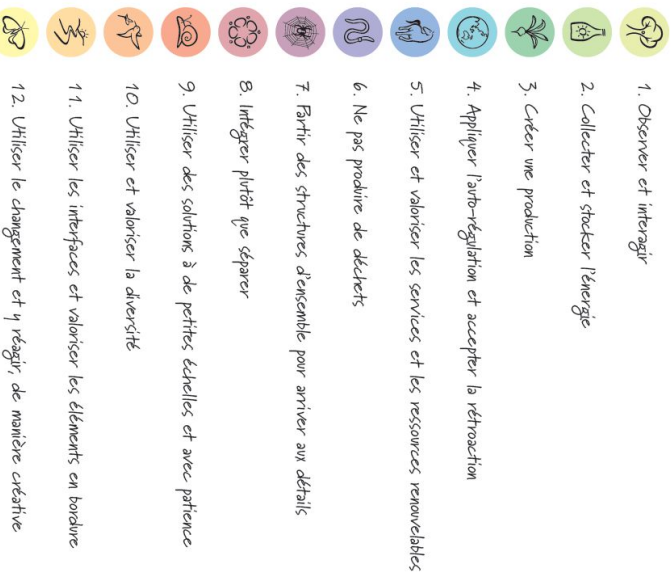 1. Observer et interagir
2. Collecter et stocker l'énergie
3. Créer une production
4. Appliquer l'auto-régulation et accepter la rétroaction
5. Utiliser et valoriser les services et les ressources renouvelables
6. Ne pas produire de déchets
7. Partir des structures d'ensemble pour arriver aux détails
8. Intégrer plutôt que séparer
9. Utiliser des solutions à de petites échelles et avec patience
10. Utiliser et valoriser la diversité
11. Utiliser les interfaces et valoriser les éléments en bordure
12. Utiliser le changement et y réagir, de manière créative